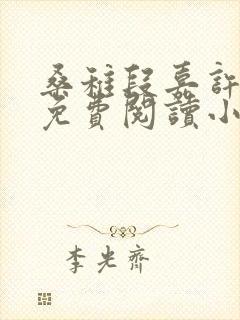 桑稚段嘉許
免費閱讀小
李光齊